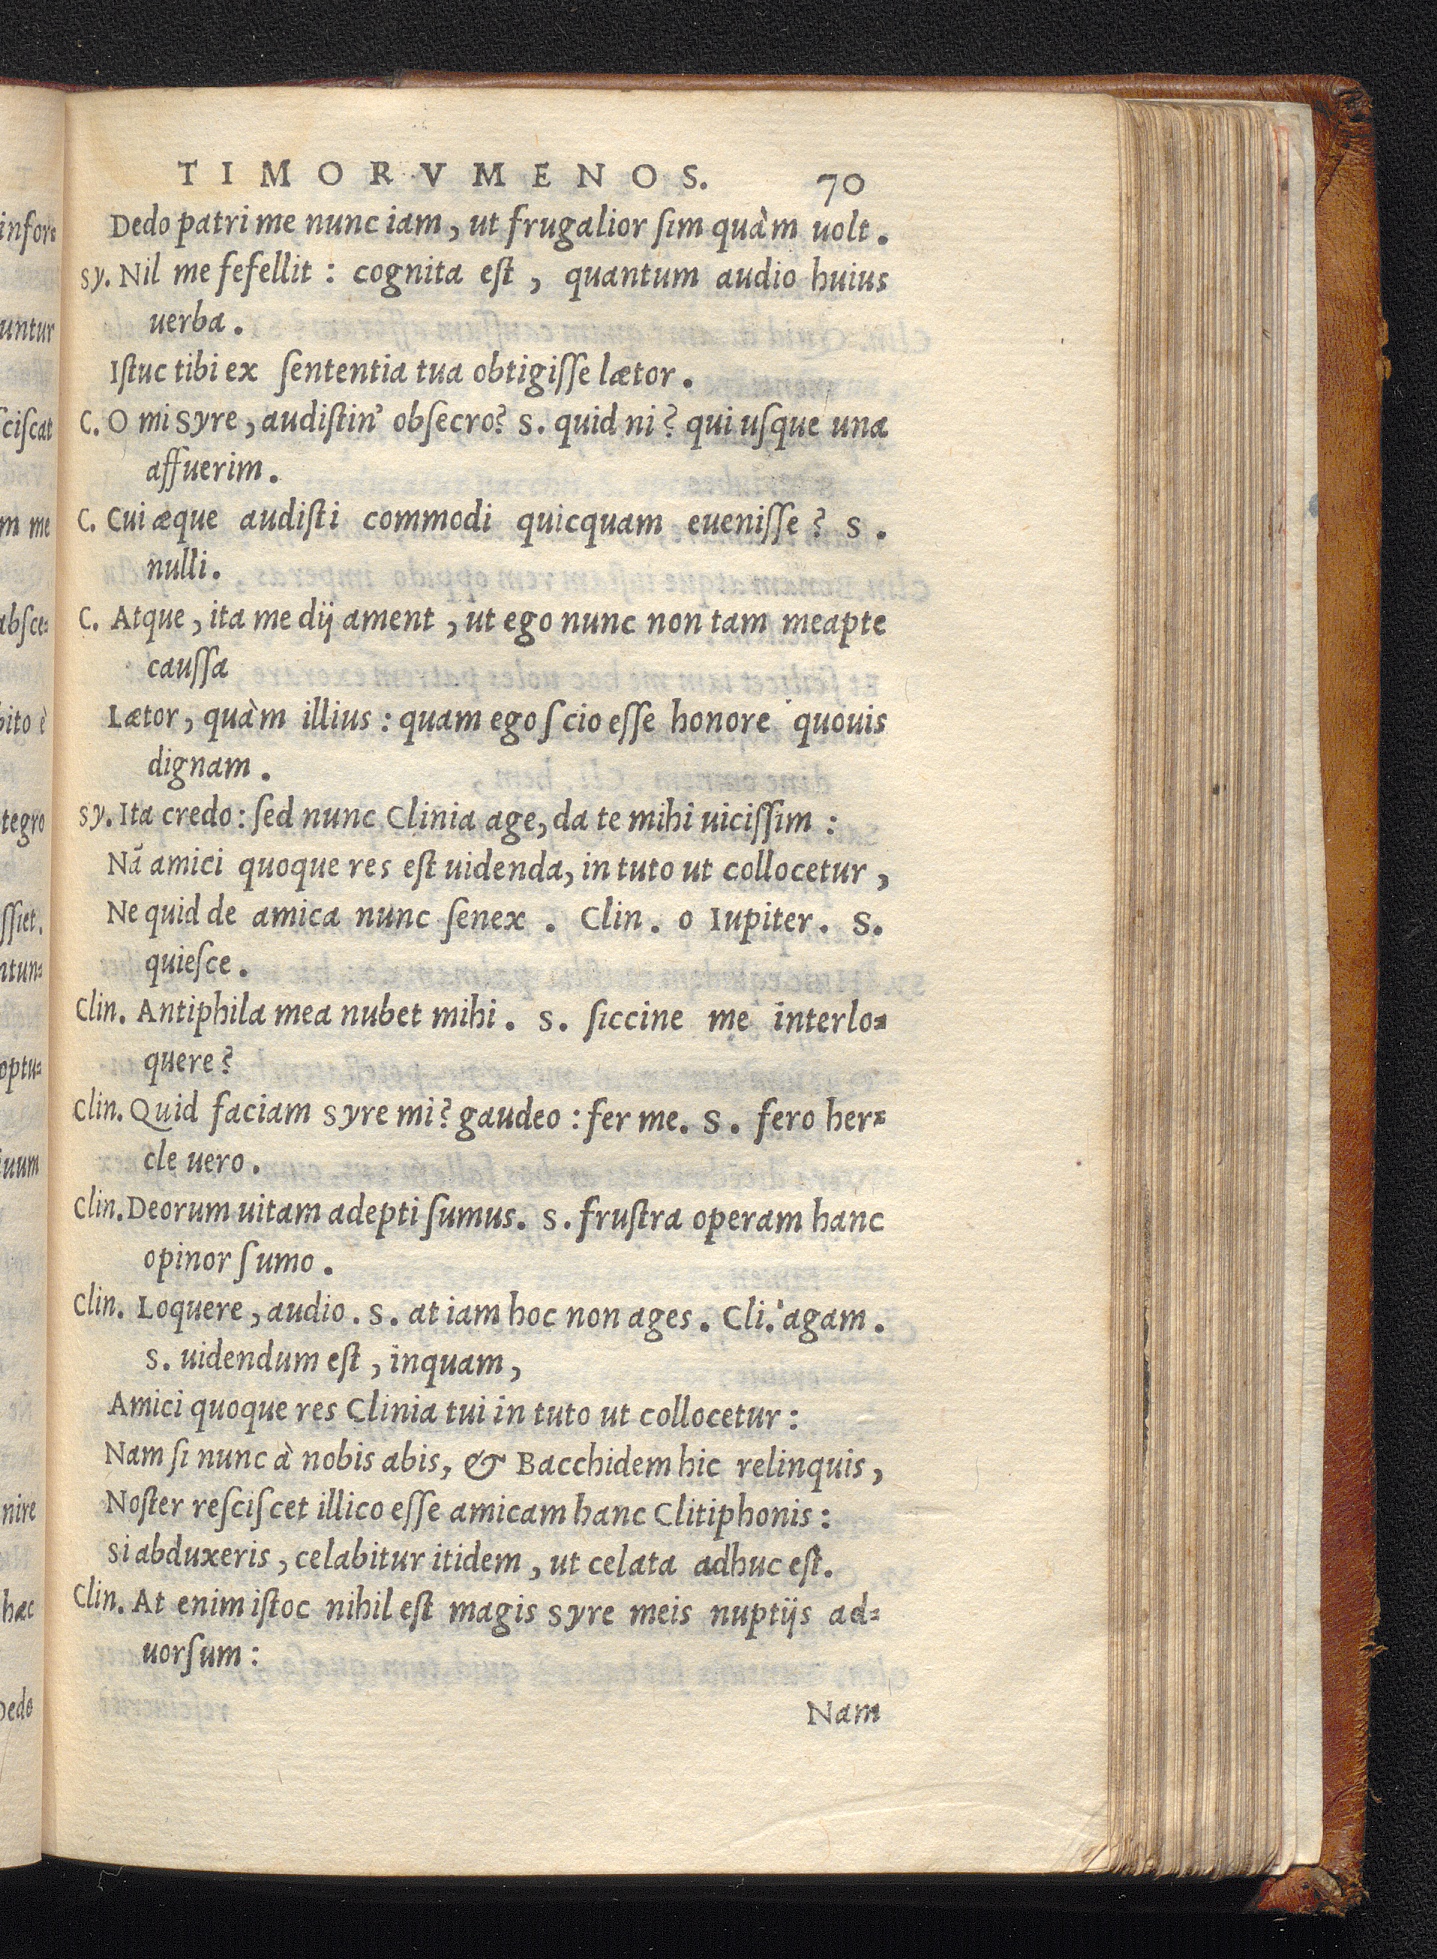 TIMORVMENOS. 70
Dedo patri me nunc iam, ut frugalior ſim quàm uolt.
Sy. Nil me fefellit: cognita eſt, quantum audio huius
uerba.
Iſtuc tibi ex ſententia tua obtigiſſe lætor.
C. O mi Syre, audiſtin' obſecro? S. quid ni? qui uſque una
affuerim.
C. Cui æque audiſti commodi quicquam eueniſſe? S.
nulli.
C. Atque, ita me dij ament, ut ego nunc non tam meapte
cauſſa
Lætor, quàm illius: quam ego ſcio eſſe honore quouis
dignam.
Sy. Ita credo: ſed nunc Clinia age, da te mihi uiciſſim:
Nā amici quoque res eſt uidenda, in tuto ut collocetur,
Ne quid de amica nunc ſenex. Clin. o Iupiter. S.
quieſce.
Clin. Antiphila mea nubet mihi. S. ſiccine me interlo-
quere?
Clin. Quid faciam Syre mi? gaudeo: fer me. S. fero her-
cle uero.
Clin. Deorum uitam adepti ſumus. S. fruſtra operam hanc
opinor ſumo.
Clin. Loquere, audio. S. at iam hoc non ages. Cli. agam.
S. uidendum eſt, inquam,
Amici quoque res Clinia tui in tuto ut collocetur:
Nam ſi nunc à nobis abis, & Bacchidem hic relinquis,
Noſter reſciſcet illico eſſe amicam hanc Clitiphonis:
Si abduxeris, celabitur itidem, ut celata adhuc eſt.
Clin. At enim iſtoc nihil eſt magis Syre meis nuptijs ad-
uorſum:
Nam